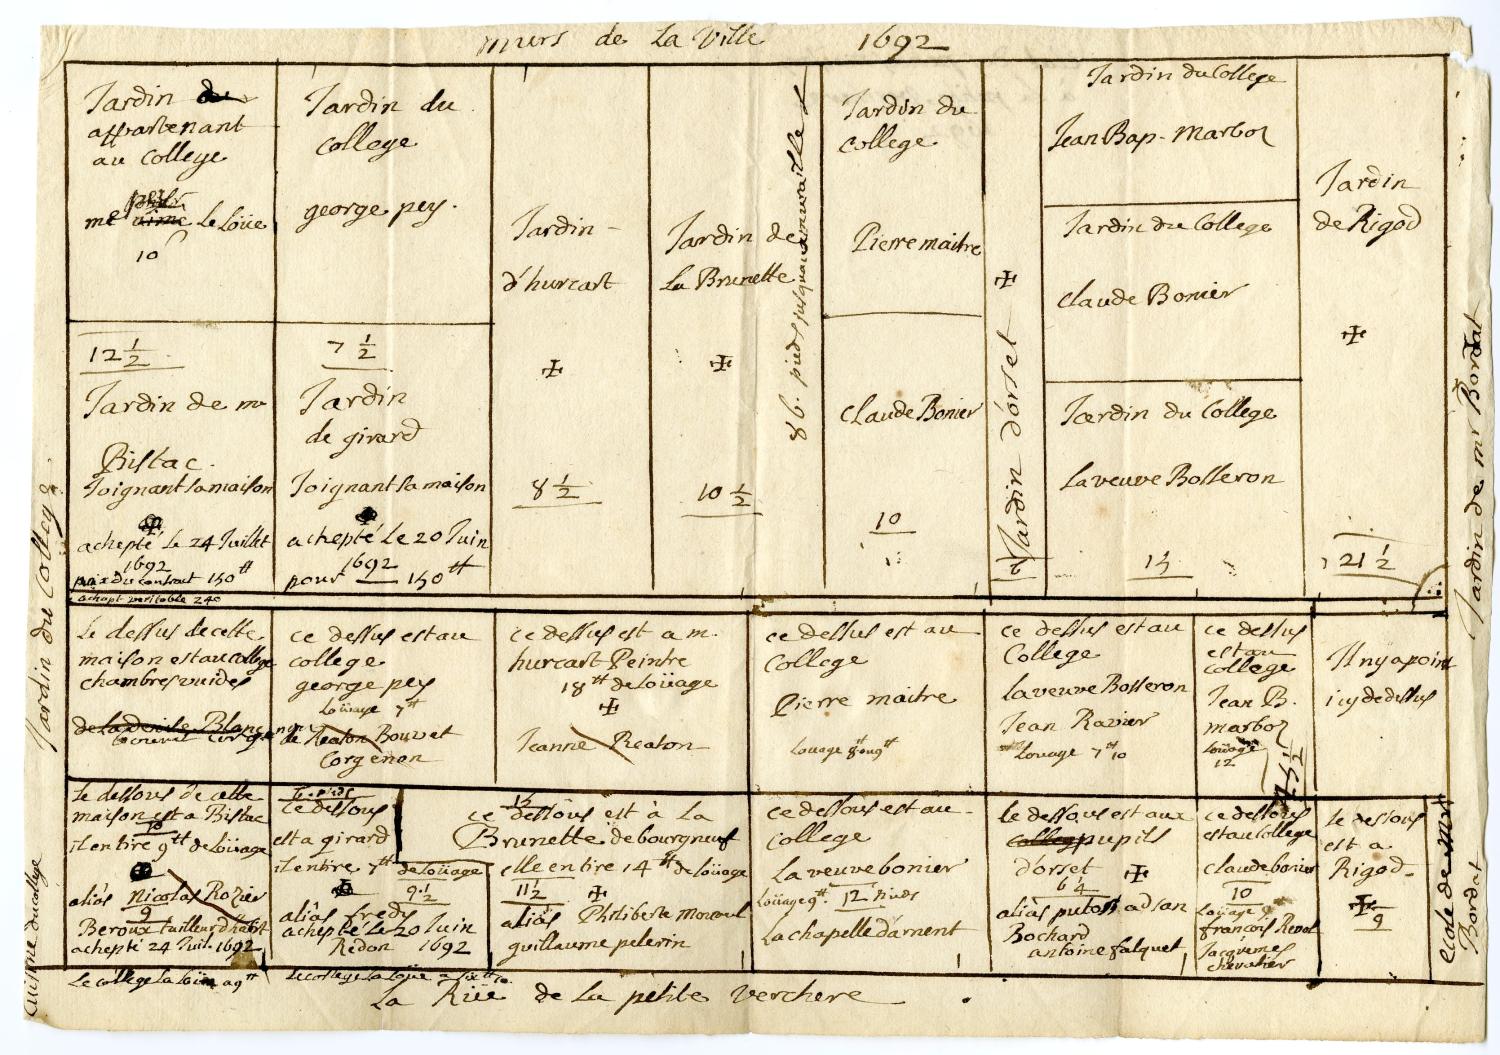 murs de La Ville 1692
Jardin du
appartenant
au college
Le Loüe
10
Jardin du
college
george pey.
Jardin
d'hurcart
✠
8 1/2
Jardin de
La Brunette
✠
10 1/2
86. pieds jusqu'a la muraille
Jardin du
college
Pierre maitre
Claude Bonier
10
✠
Jardin d'orset
Jardin du College
Jean Bap. Marboz
Jardin du College
Claude Bonier
Jardin du College
La veuve Bosseron
15
Jardin
de Rigod
✠
21 1/2
12 1/2
Jardin de mr
Bistac.
Joignant sa maison
achepté Le 24 Juillet
1692
prix du contract 150 tt
achapt veritable 240
7 1/2
Jardin
de girard
Joignant sa maison
achepté Le 20 Juin
1692
pour 150 tt
Le dessus de cette
maison est au college
chambres vuides
ce dessus est au
college
george pey
Loüage 7 tt
de Reaton Bouvet
Corgenon
ce dessus est a m.
hurcart Peintre
18 tt de loüage
✠
Jeanne Reaton
ce dessus est au
College
Pierre maitre
Louage 8 ou 9 tt
ce dessus est au
College
La veuve Bosseron
Jean Ravier
Louage 7 tt 10
ce dessus
est au
college
Jean B.
marboz
Loüage
12
Il ny a point
icy de dessus
Le dessous de cette
maison est a Bistac
10
il en tire 9 tt de loüage
aliàs Nicolas Rozier
9
Beroux tailleur d'habit
achepté 24 Juil. 1692
ce dessous
est a girard
il en tire 7 tt de loüage
9 1/2
aliàs fredy
achepté Le 20 Juin
Redon 1692
ce dessous est à La
Brunette de bourgneuf
elle en tire 14 tt de loüage
11 1/2 ✠
aliàs Philiberte
guillaume pelerin
ce dessous est au
College
La veuve bonier
Loüage 9 tt. 12 pieds
La chapelle d'arnent
le dessous est aux
pupils
d'orset ✠
aliàs
Bochard
antoine falquet
ce dessous
est au College
Claude bonier
10
Loüage 9 tt
françois
Jacquemes
chevalier
le dessous
est a
Rigod
✠
9
Le college La Loüe a 9 tt
Le college La Loüe a six tt 10
La Rüe de La petite verchere
Jardin du College
Cuisine du college
Jardin de mr Bordat
ecole de mr
Bordat